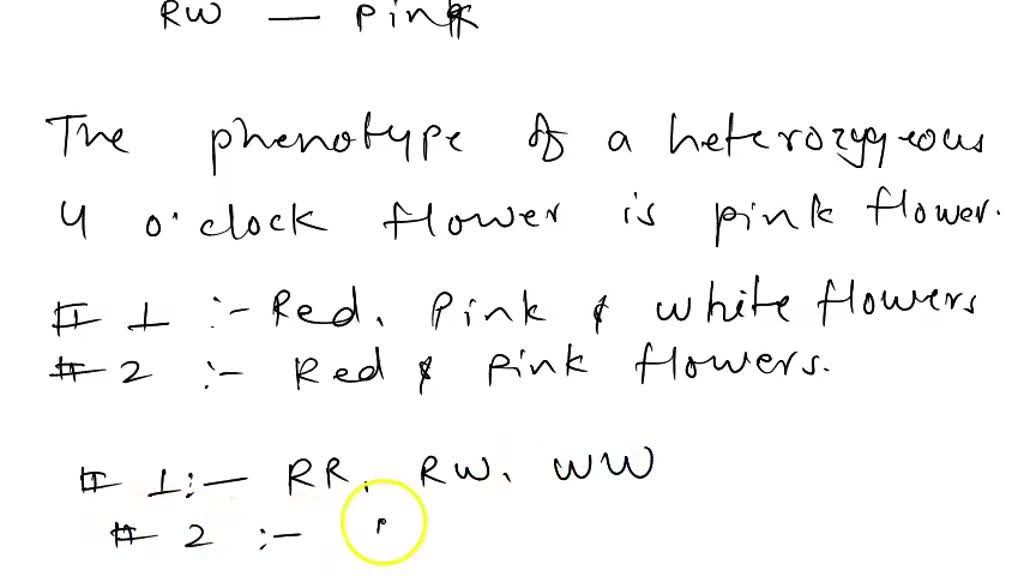 RW — pink
The phenotype of a heterozygeous
4 o'clock flower is pink flower.
# 1 :- Red, Pink & white flowers
# 2 :- Red & pink flowers.
# 1:— RR, RW, WW
# 2 :-